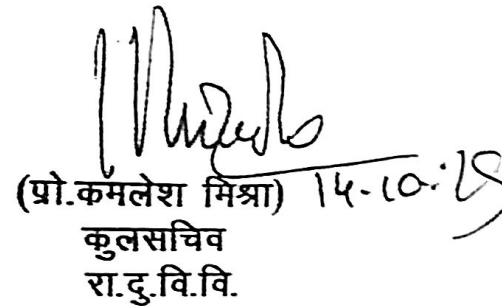 (प्रो.कमलेश मिश्रा) 14-10-25
कुलसचिव
रा.दु.वि.वि.